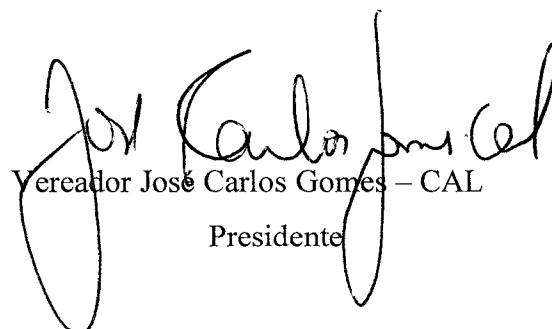 José Carlos Gomes Cal
Vereador José Carlos Gomes – CAL
Presidente